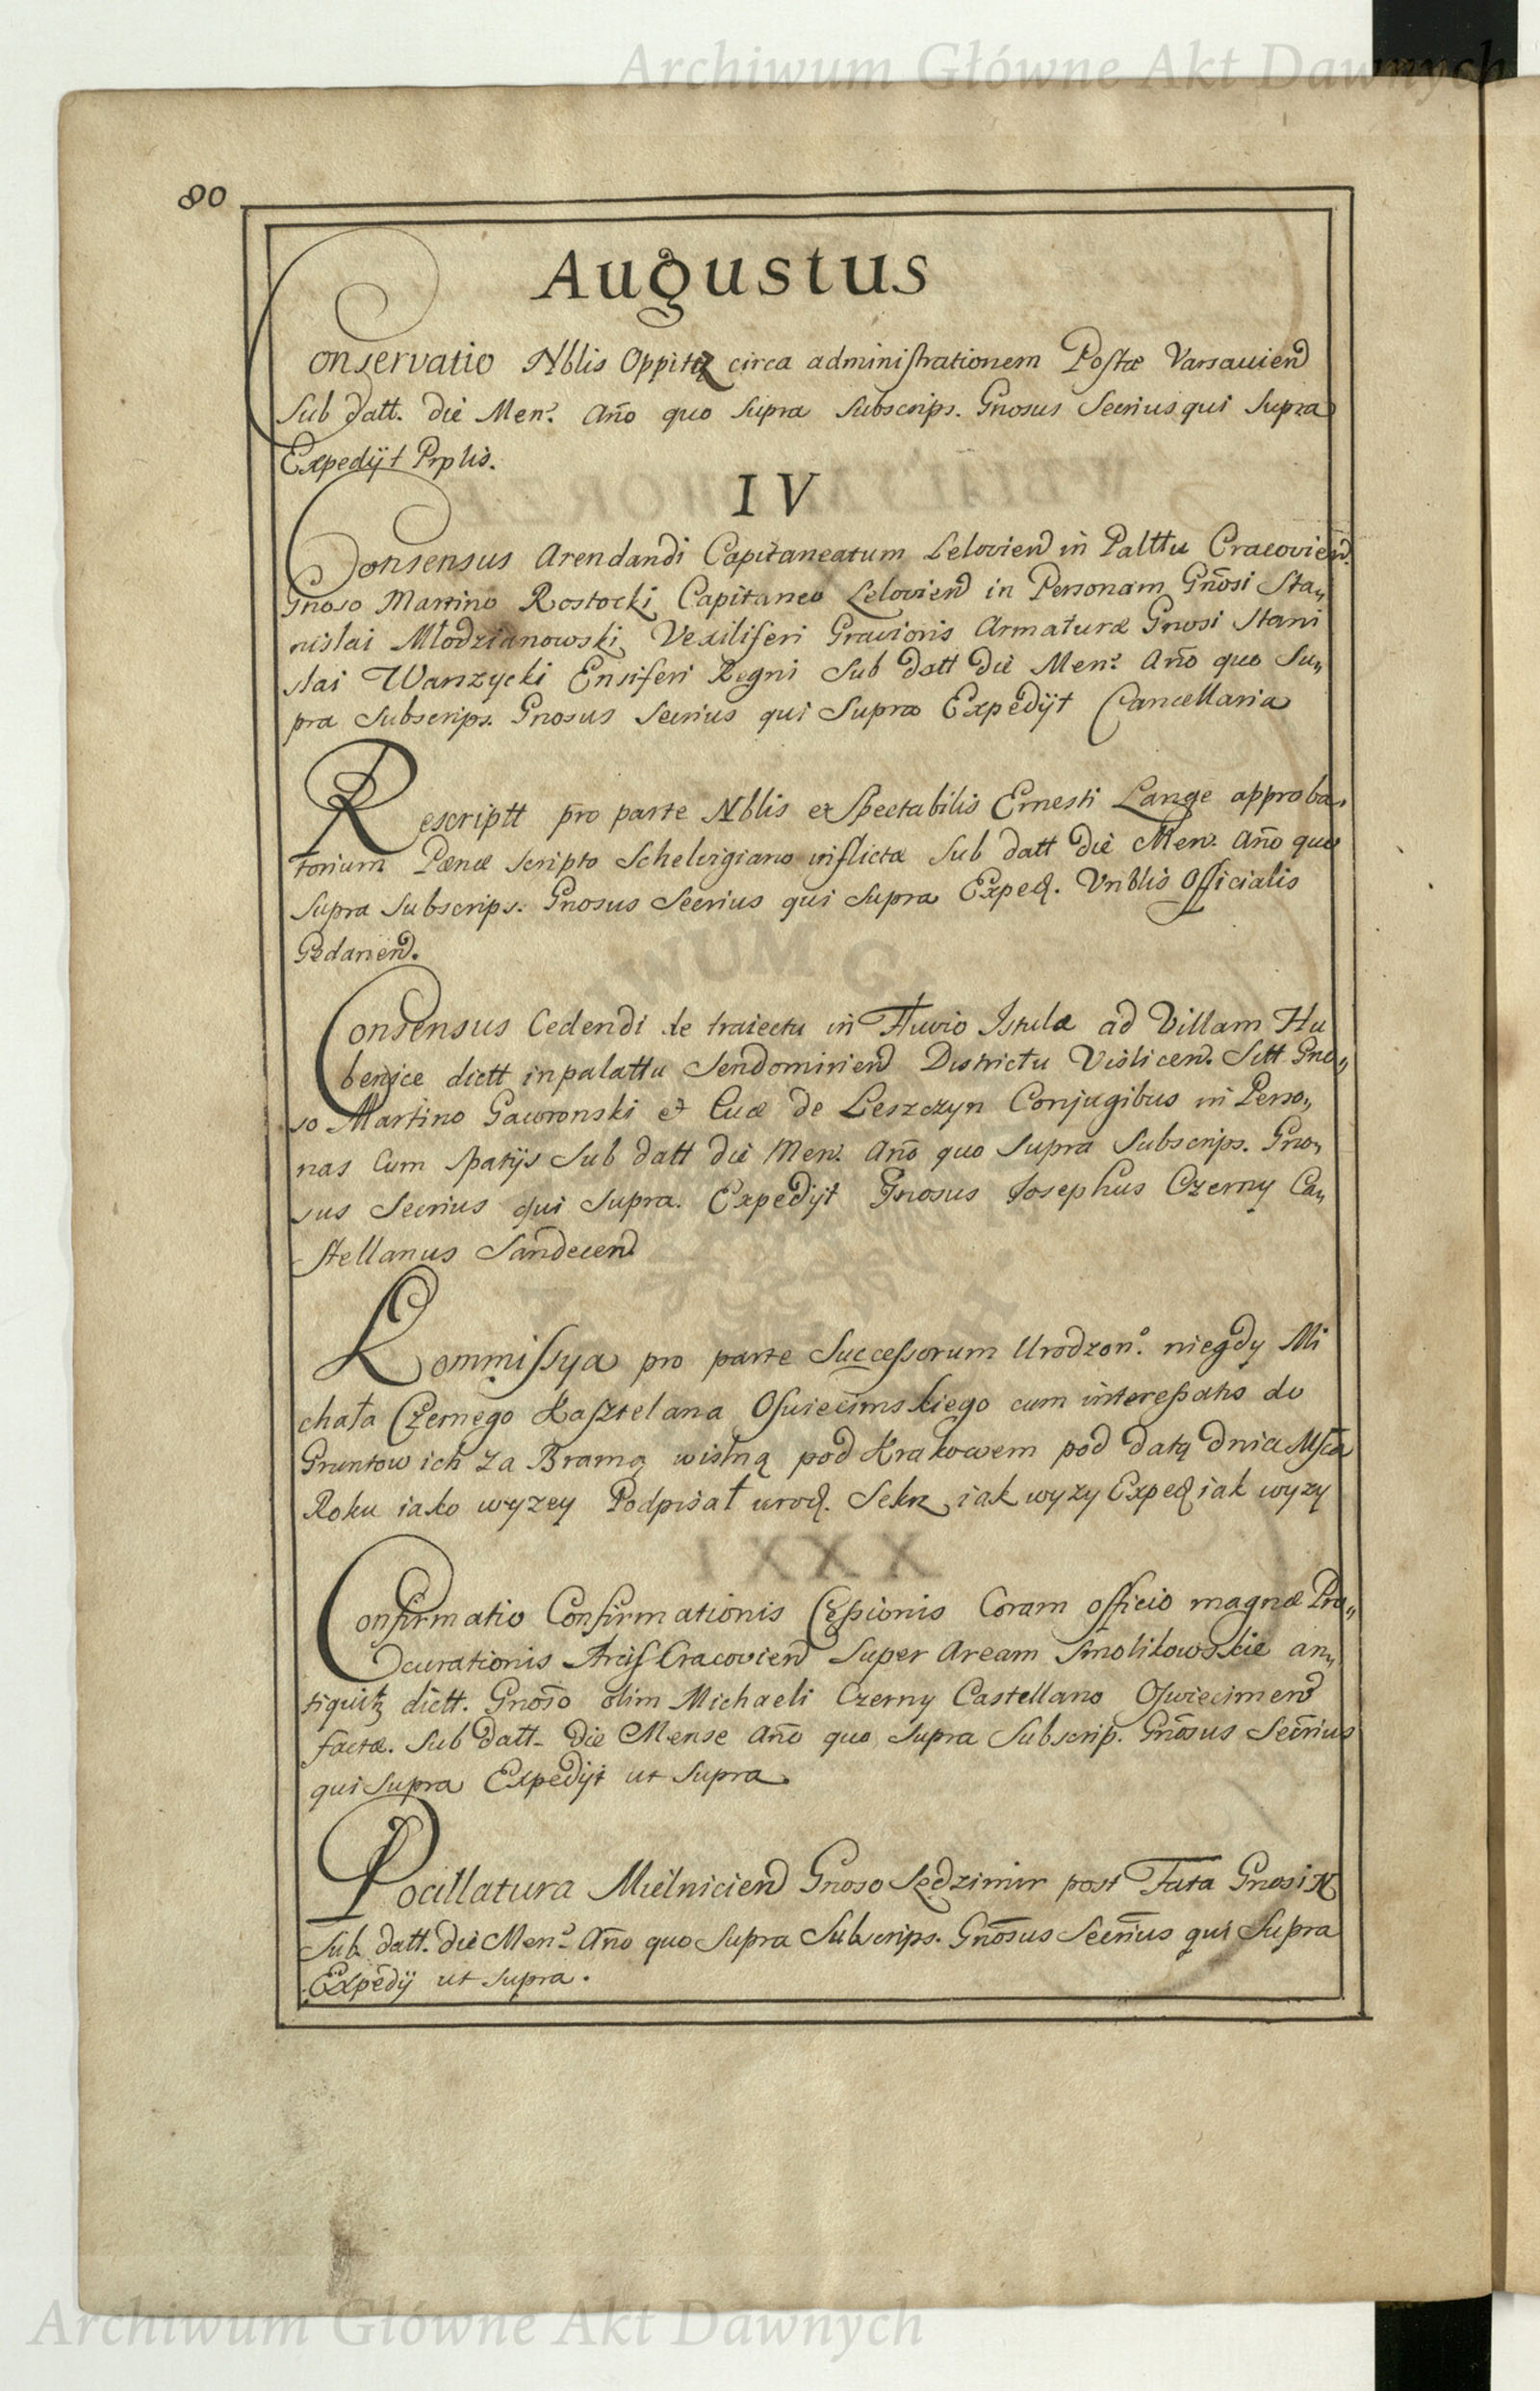 Archiwum Główne Akt Dawnych
80
Augustus
Conservatio Nblis Oppitz circa administrationem Postæ Varsavien
Sub datt. die Men. Año quo Supra Subscrips. Gnosus Secrius qui Supra
Expedijt Prplis.
IV
Consensus Arendandi Capitaneatum Lelovien in Palttu Cracovien.
Gnoso Martino Rostocki Capitaneo Lelovien in Personam Gnosi Sta„
nislai Młodzianowski Vexiliferi Gravioris Armaturæ Gnosi Stani
slai Warszycki Ensiferi Regni Sub datt die Men. Año quo Su„
pra Subscrips. Gnosus Secrius qui Supra Expedijt Cancellaria
Rescriptt pro parte Nblis et Spectabilis Ernesti Lange approba„
torium Pænæ scripto Schelvigiano inflictæ Sub datt die Men. Año quo
Supra Subscrips. Gnosus Secrius qui Supra Exped. Vnblis Officialis
Gedanen.
Consensus Cedendi de traiectu in Fluvio Istulæ ad Villam Hu
benice dictt in palattu Sendomirien Districtu Vislicen. Sitt Gno„
so Martino Gawronski et Evæ de Leszczyn Conjugibus in Perso„
nas Cum Spatijs Sub datt die Men. Año quo Supra Subscrips. Gno„
sus Secrius qui Supra. Expedijt Gnosus Josephus Czerny Ca„
stellanus Sandecen
Kommissya pro parte Successorum Urodzon.° niegdy Mi
chała Czernego Kasztelana Oswiecimskiego cum interessatis do
Gruntow ich za Bramą wislną pod Krakowem pod datą dnia Msca
Roku iako wyzey Podpisał urod. Sekr iak wyzy Exped iak wyzy
Confirmatio Confirmationis Cessionis Coram officio magnæ Pro„
curationis Arcis Cracovien Super Aream Smolikowskie an„
tiquitz dictt. Gnoso olim Michaeli Czerny Castellano Oswiecimen
factæ. Sub datt. die Mense Año quo Supra Subscrip. Gnosus Secrius
qui Supra Expedijt ut Supra
Pocillatura Mielnicien Gnoso Sędzimir post Fata Gnosi N
Sub datt. die Men. Año quo Supra Subscrips. Gnosus Secrius qui Supra
Expedij ut supra.
Archiwum Główne Akt Dawnych